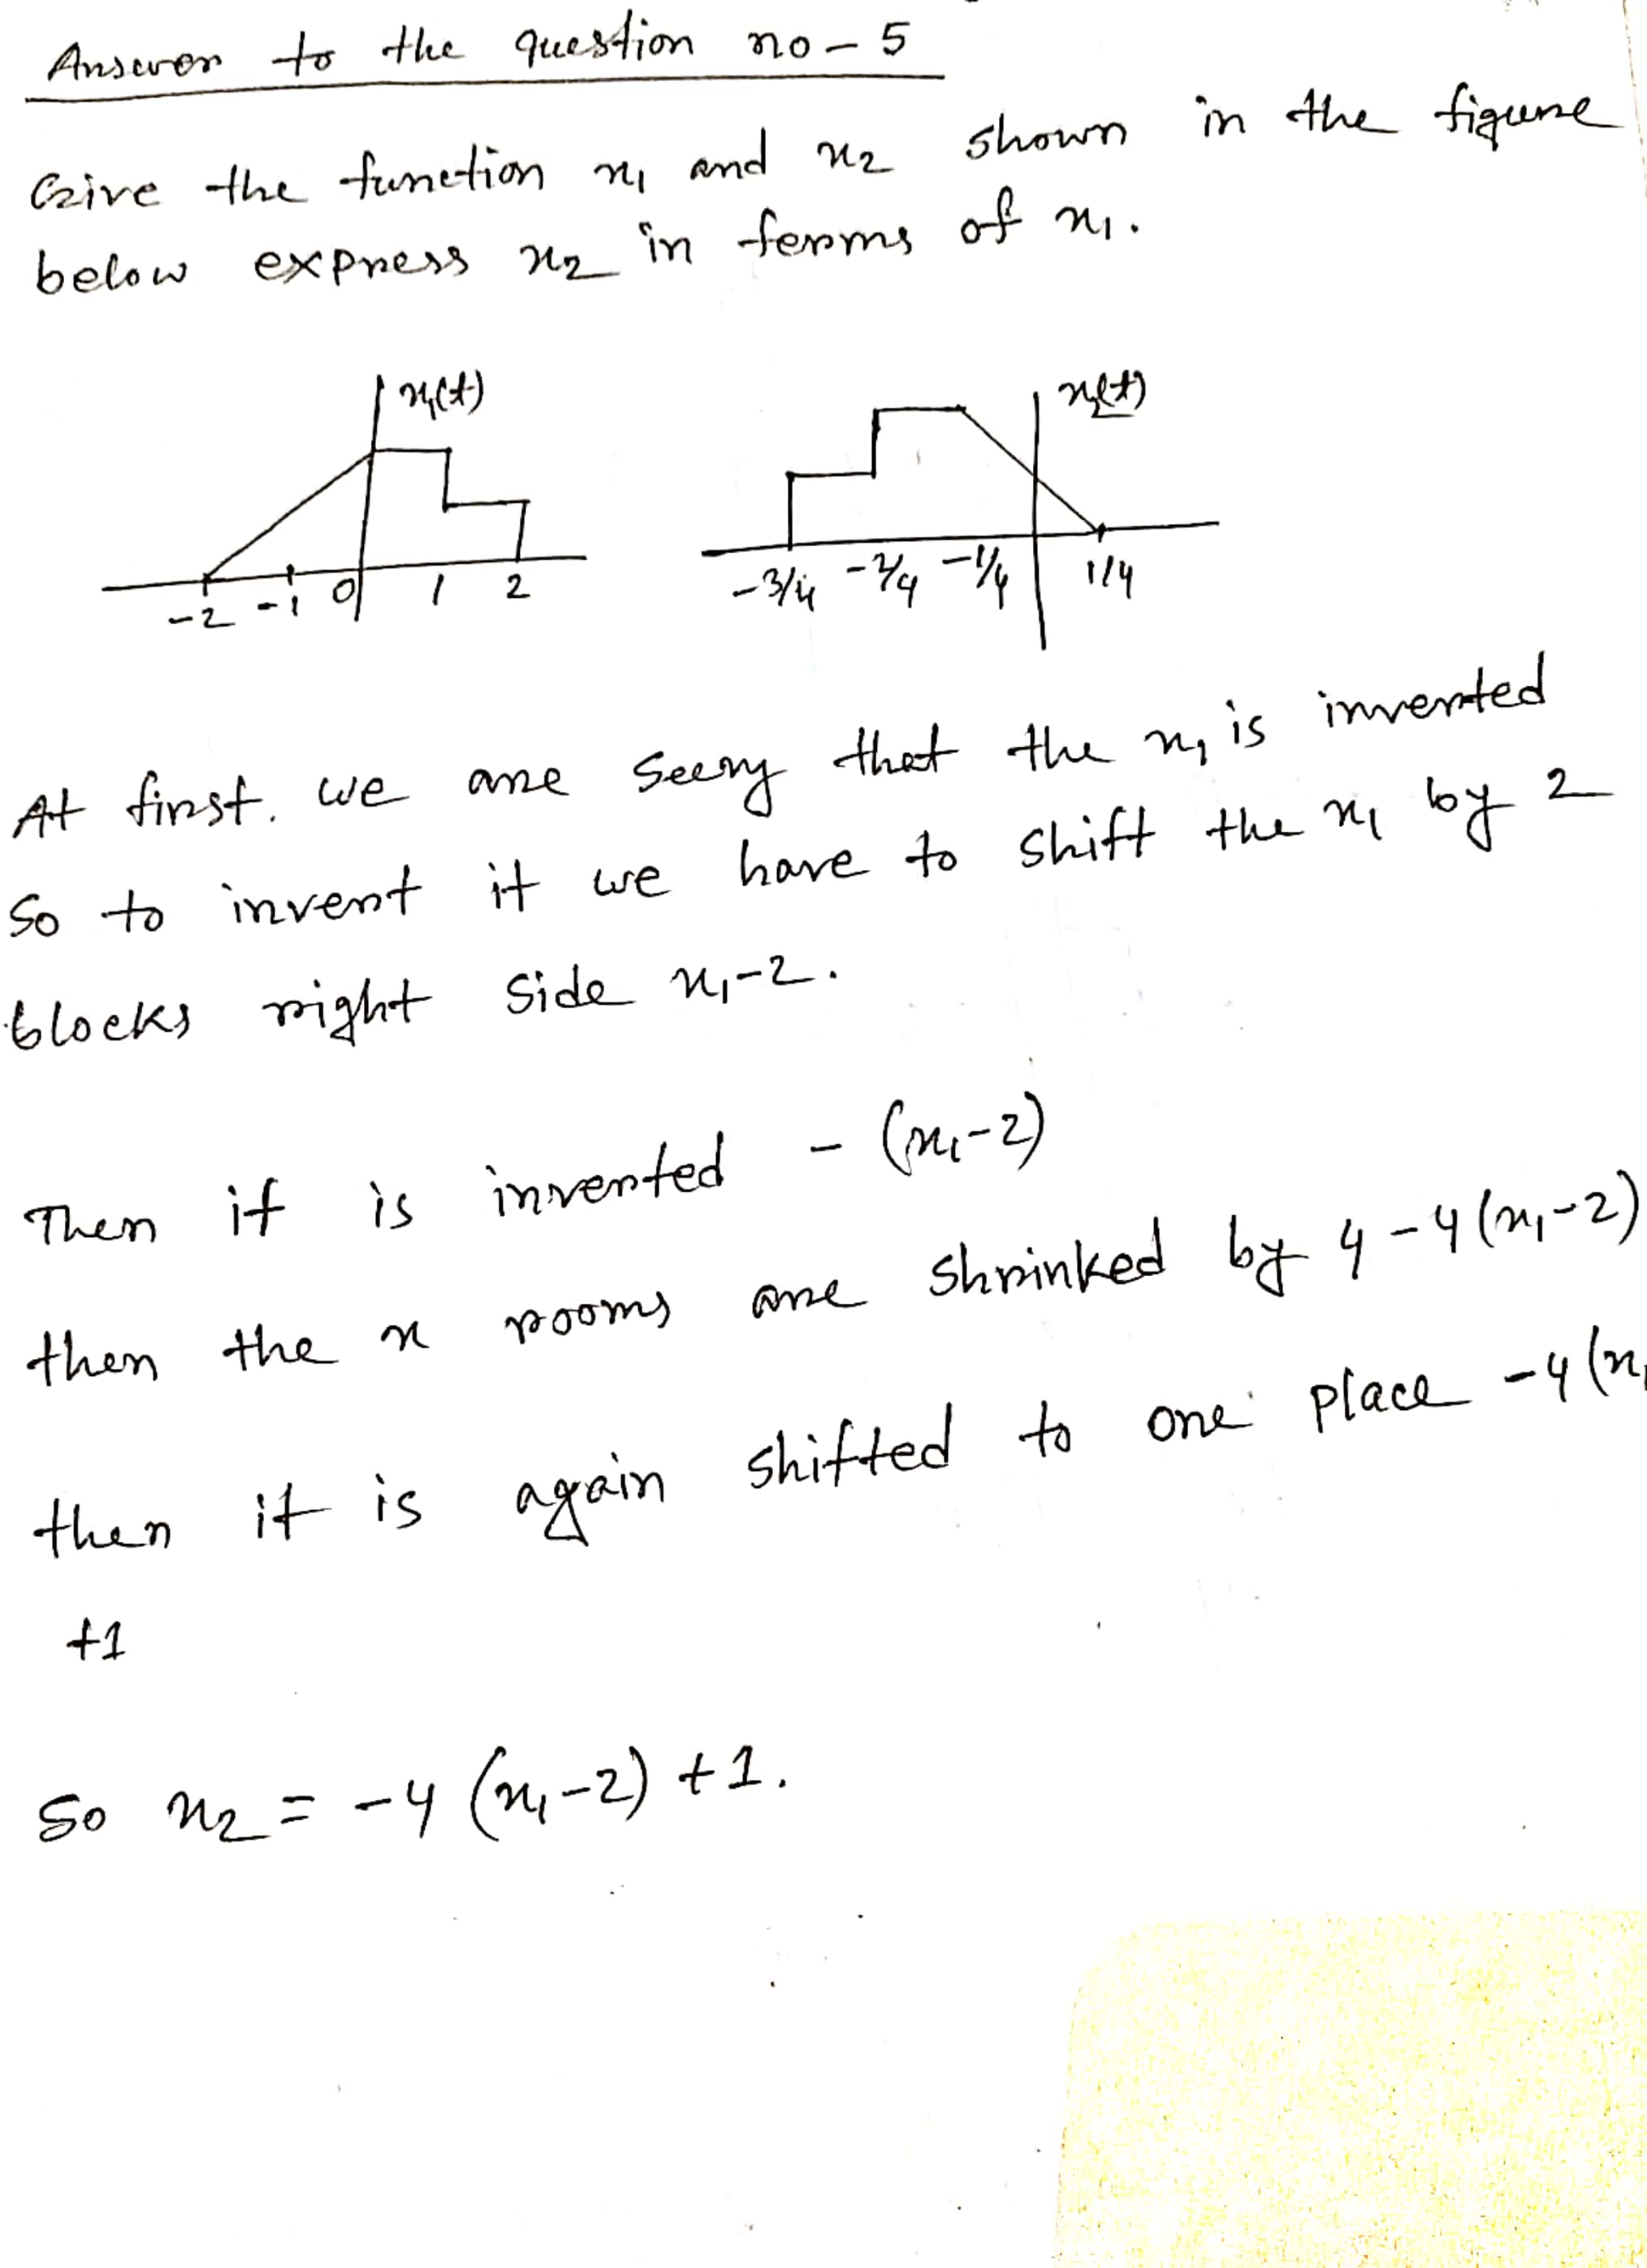 Answer to the question no - 5
Give the function x₁ and x₂ shown in the figure
below express x₂ in terms of x₁.
x₁(t) x₂(t)
-2 -1 0 1 2 -3/4 -2/4 -1/4 1/4
At first. we are seeing that the x₁ is inverted
so to invert it we have to shift the x₁ by 2
blocks right side x₁-2.
Then it is inverted - (x₁-2)
then the x rooms are shrinked by 4 -4(x₁-2)
then it is again shifted to one place -4(x₁
+1
So x₂ = -4 (x₁-2) +1.